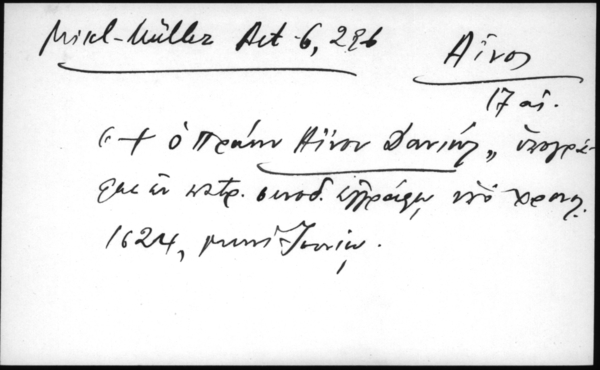 Mikl-Müller Act 6, 296
Αἶνος
17 αἰ.
"+ ὁ πρώην Αἴνου Δανιήλ„ ὑπογρά-
φει ἐν πατρ. συνοδ. ἐγγράφῳ, ὑπὸ χρονολ.
1624, μηνὶ Ἰουνίῳ.